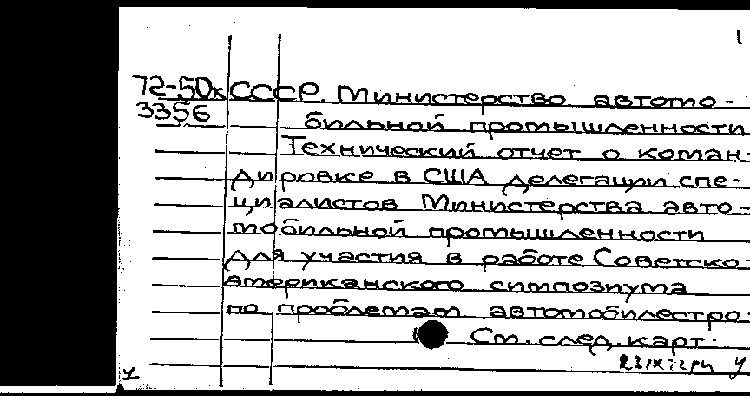 1
72-50к СССР. Министерство автомо-
3356 бильной промышленности
Технический отчет о коман-
дировке в США делегации спе-
циалистов Министерства авто-
мобильной промышленности
для участия в работе Советско-
американского симпозиума
по проблемам автомобилестро-
См. след. карт.